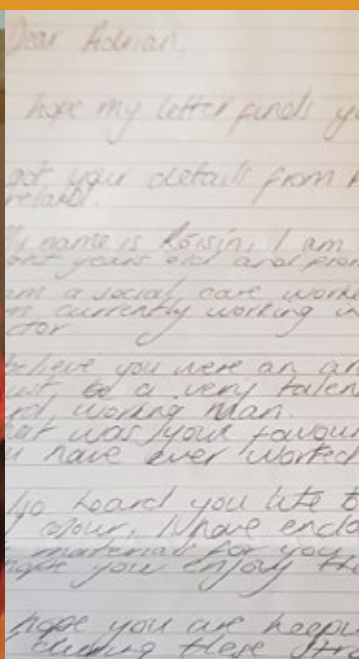 Dear Adrian,
hope my letter finds yo
got your details from A
reland.
My name is Róisín, I am
years old and from
am a social care work
m currently working in
ctor
believe you were an ar
ust be a very talen
rd working man.
hat was your favour
u have ever worked
lso heard you like to
colour, I have enclo
materials for you
hope you enjoy the
hope you are keepin
during these stra